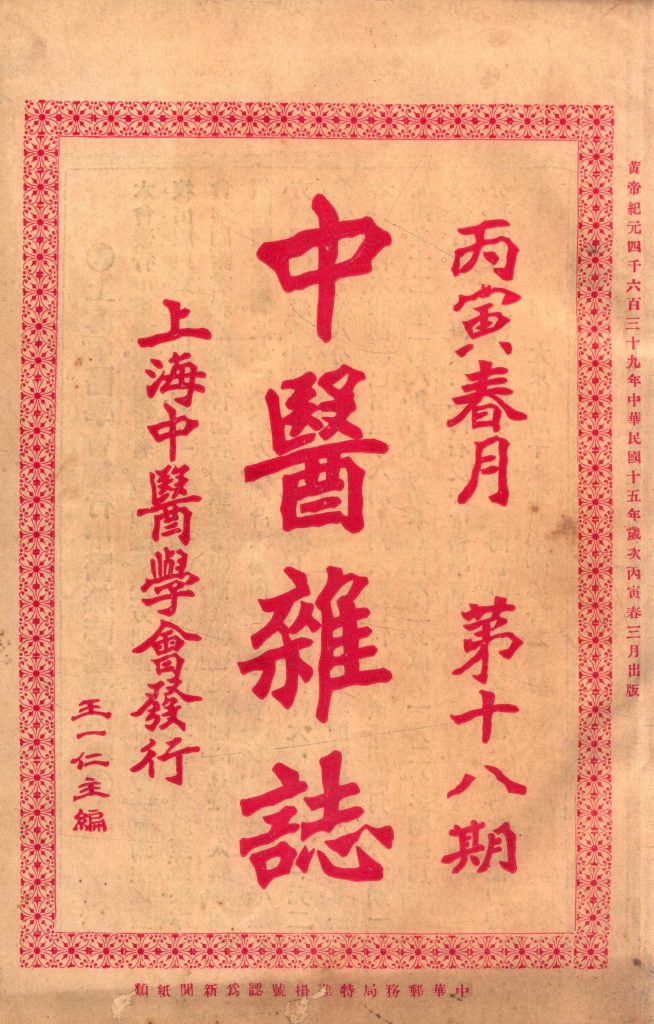 黄帝紀元四千六百三十九年中華民國十五年歲次丙寅春三月出版
丙寅春月 第十八期
中醫雜誌
上海中醫學會發行
王一仁主編
中華郵務局特准掛號認爲新聞紙類